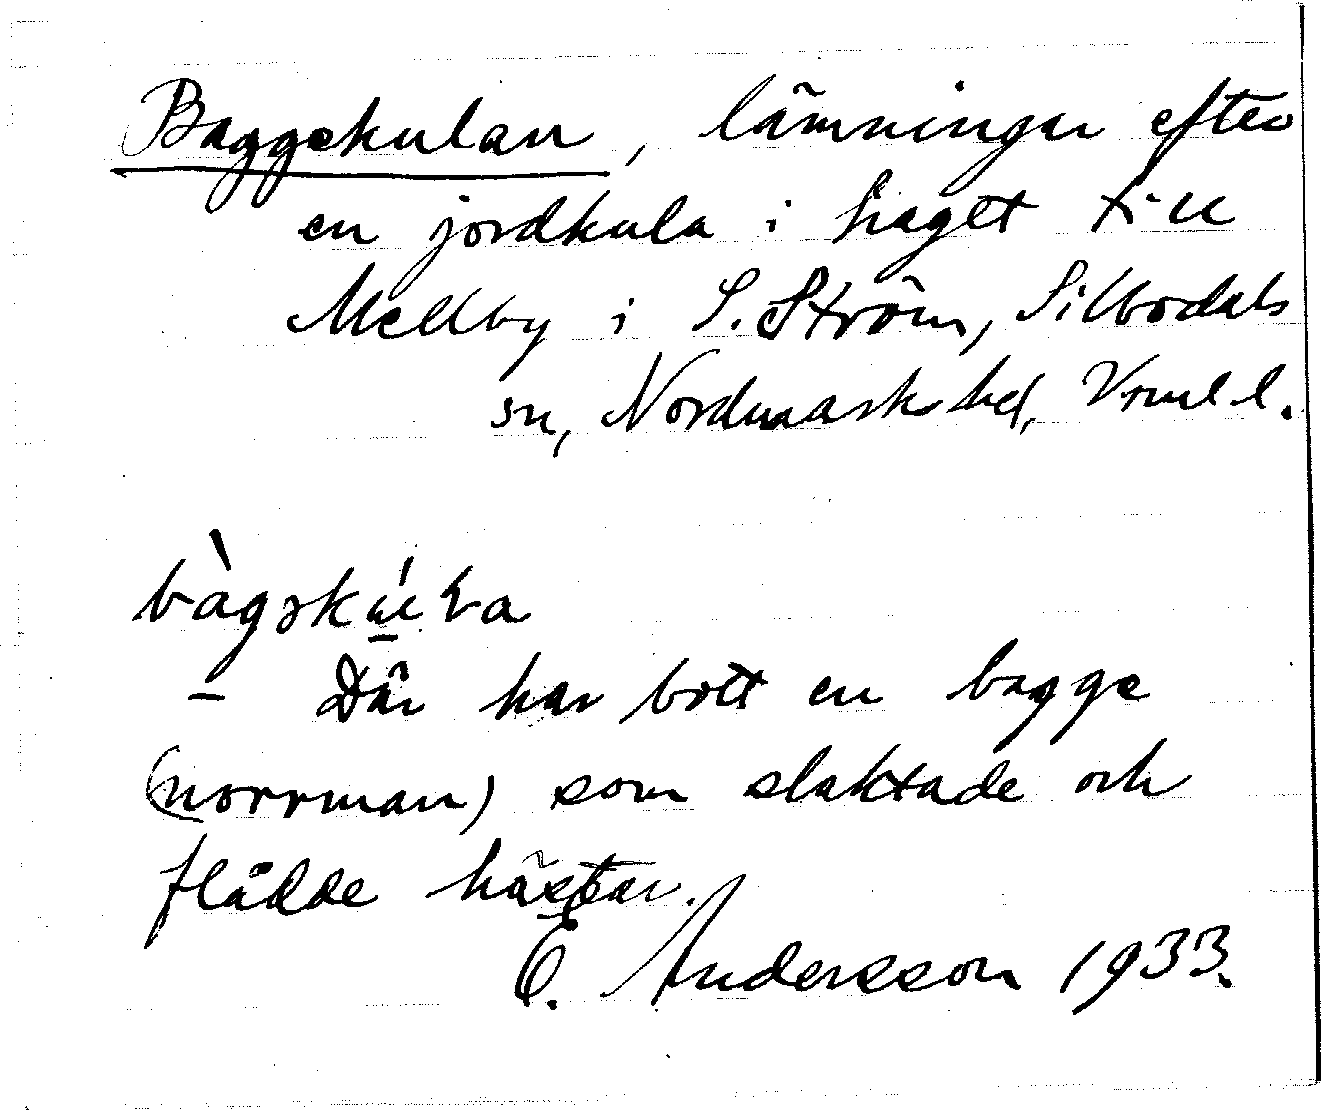 Baggekulan, lämningar efter
en jordkula i haget till
Mellby i S. Ström, Silbodals
sn, Nordmarks hd, Vrml l.
bàgəkúɽa
– Där har bott en bagge
(norrman) som slaktade och
flådde hästar.
E. Andersson 1933.